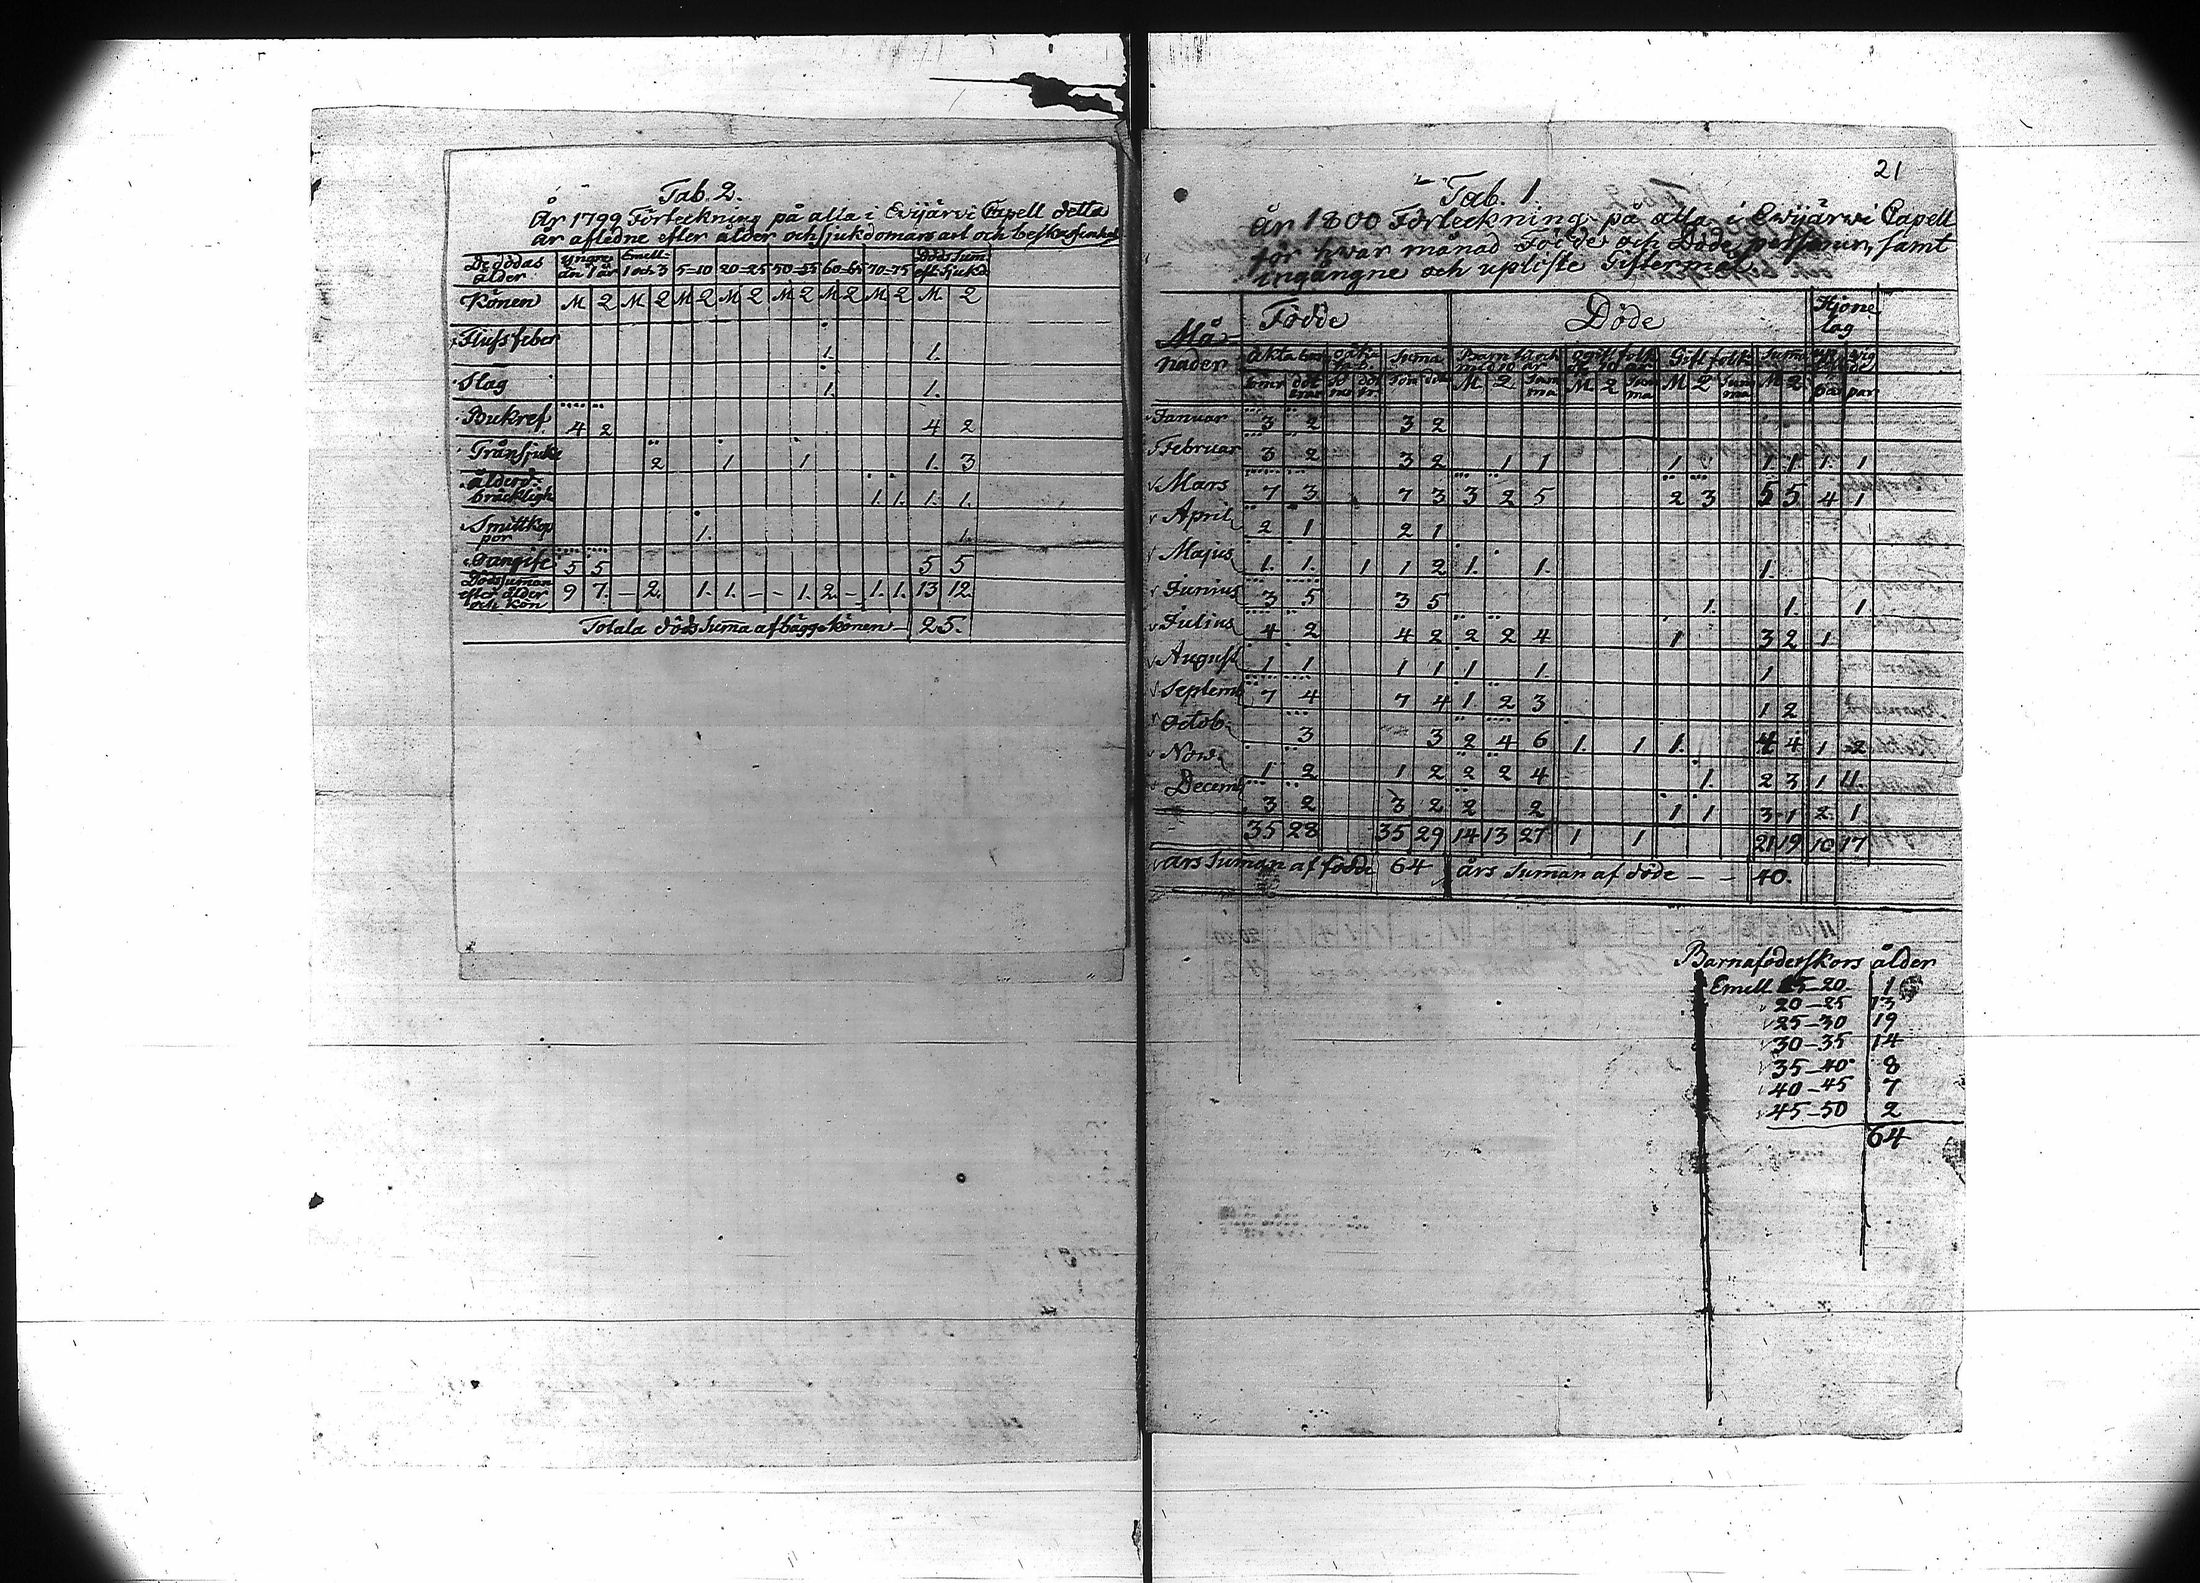 Tab. 2.
År 1799 Förteckning på alla i Evijärvi Capell detta
år aflidne efter ålder och sjukdomars art och beskaffenhet
De dödas ålder | yngre än 1 år | Emell: 1 och 3 | 5-10 | 20-25 | 50-55 | 60-65 | 70-75 | Döds Sum. eft. sjukd.
Könen | M | Q | M | Q | M | Q | M | Q | M | Q | M | Q | M | Q | M | Q
Flussfeber 1. 1.
Slag 1. 1.
Bukref 4 2 4 2
Trånsjuka 2 1 1 1. 3
ålderd: bräckligh 1. 1. 1. 1.
Smittkop por 1. 1.
5 5 5 5
Döds suman efter ålder och kön 9 7. – 2. 1. 1. – – 1. 2 – 1. 1. 13 12.
Totala döds Summa af bägge könen – 25.
21
Tab. 1.
år 1800 Förteckning på alla i Evijärvi Capell
för hvar månad Födde och Döde personer, samt
ingångne och uplöste Giftermål
Må-
nader | Födde | Döde | Hjone lag
Äkta barn | oäkta | Suma | Barn | ogift folk | Gift folk | Suma
söner | döt trar | sö ner | döt tr. | Sön | döt | M | Q | Sum ma | M | Q | Sum ma | M | Q | Sum ma | M | Q | par | par
Januar 3 2 3 2
Februar 3 2 3 2 1 1 1 1 1 1. 1
Mars 7 3 7 3 3 2 5 2 3 5 5 4 1
April 2 1 2 1
Majus 1. 1. 1 1 2 1. 1. 1.
Junius 3 5 3 5 1. 1. 1
Julius 4 2 4 2 2 2 4 1 3 2 1
August 1 1 1 1 1 1. 1
Septemb 7 4 7 4 1 2 3 1 2
Octob. 3 3 2 4 6 1. 1 1. 4 4 1 2
Nov. 1 2 1 2 2 2 4 1. 2 3 1 11.
Decemb 3 2 3 2 2 2 1 1 3 1 2 1
35 28 35 29 14 13 27 1 1 21 19 10 17
års Suman af födde 64 års Suman af döde – – 40.
Barnaföderskors ålder
Emell 15–20 1
20–25 13
25–30 19
30–35 14
35–40 8
40–45 7
45–50 2
64